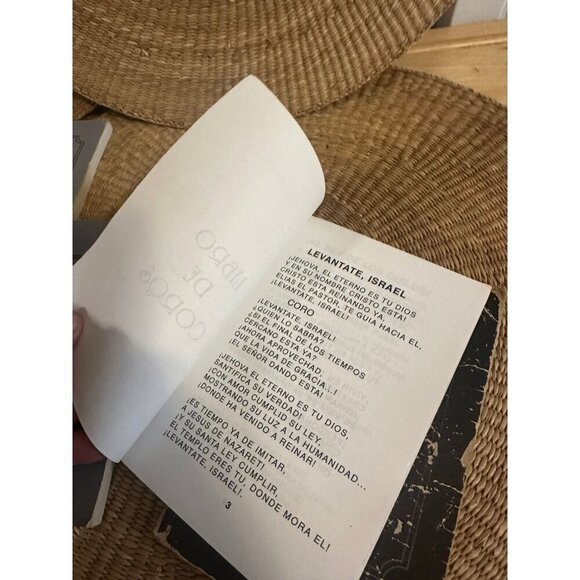 LIBRO
DE
COROS
LEVANTATE, ISRAEL
¡JEHOVA, EL ETERNO ES TU DIOS
Y EN SU NOMBRE CRISTO ESTA!
CRISTO ESTA REINANDO YA.
ELIAS EL PASTOR, TE GUIA HACIA EL.
¡LEVANTATE, ISRAEL!
CORO
¡LEVANTATE, ISRAEL!
¿QUIEN LO SABRA?
¿SI EL FINAL DE LOS TIEMPOS
CERCANO ESTA YA?
¡AHORA APROVECHAD,
QUE LA VIDA DE GRACIA...!
¡EL SEÑOR DANDO ESTA!
¡JEHOVA EL ETERNO ES TU DIOS,
SANTIFICA SU VERDAD!
¡CON AMOR CUMPLID SU LEY.
MOSTRANDO SU LUZ A LA HUMANIDAD...
¡DONDE HA VENIDO A REINAR!
¡ES TIEMPO YA DE IMITAR,
A JESUS DE NAZARET!
¡Y SU SANTA LEY CUMPLIR,
EL TEMPLO ERES TU, DONDE MORA EL!
¡LEVANTATE, ISRAEL!.
3